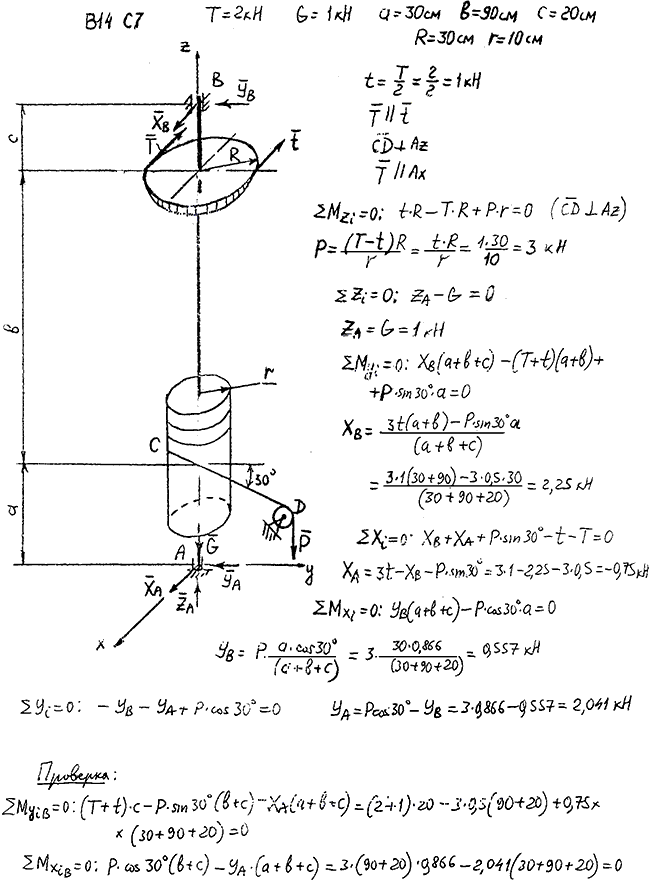 В14 С7   T=2кН   G=1кН   a=30см   в=90см   c=20см
R=30см   r=10см
t = T/2 = 2/2 = 1кН
T̄ ∥ t̄
C̄D̄ ⊥ Az
T̄ ∥ Ax
ΣM_Zi=0; t·R−T·R+P·r=0 (C̄D̄ ⊥ Az)
P = (T−t)R/r = t·R/r = 1·30/10 = 3 кН
ΣZi=0; Z_A−G=0
Z_A=G=1кН
ΣM_yi=0: X_B(a+в+c)−(T+t)(a+в)+
+P·sin30°·a=0
X_B = (3t(a+в)−P·sin30°a)/(a+в+c)
= (3·1(30+90)−3·0,5·30)/(30+90+20) = 2,25 кН
ΣXi=0: X_B+X_A+P·sin30°−t−T=0
X_A=3t−X_B−P·sin30°=3·1−2,25−3·0,5=−0,75кН
ΣM_Xi=0: y_B(a+в+c)−P·cos30°·a=0
y_B = P·(a·cos30°)/(a+в+c) = 3·(30·0,866)/(30+90+20) = 0,557 кН
Σyi=0: −y_B−y_A+P·cos30°=0   y_A=Pcos30°−y_B=3·0,866−0,557=2,041кН
Проверка:
ΣM_yiB=0: (T+t)·c−P·sin30°(в+c)−X_A(a+в+c)=(2+1)·20−3·0,5(90+20)+0,75×
×(30+90+20)=0
ΣM_XiB=0: P·cos30°(в+c)−y_A·(a+в+c)=3·(90+20)·0,866−2,041(30+90+20)=0
z
B
ȳ_B
X̄_B
T̄
t̄
R
c
в
r
C
30°
D
a
P̄
Ḡ
A
ȳ_A
y
X̄_A
Z̄_A
x